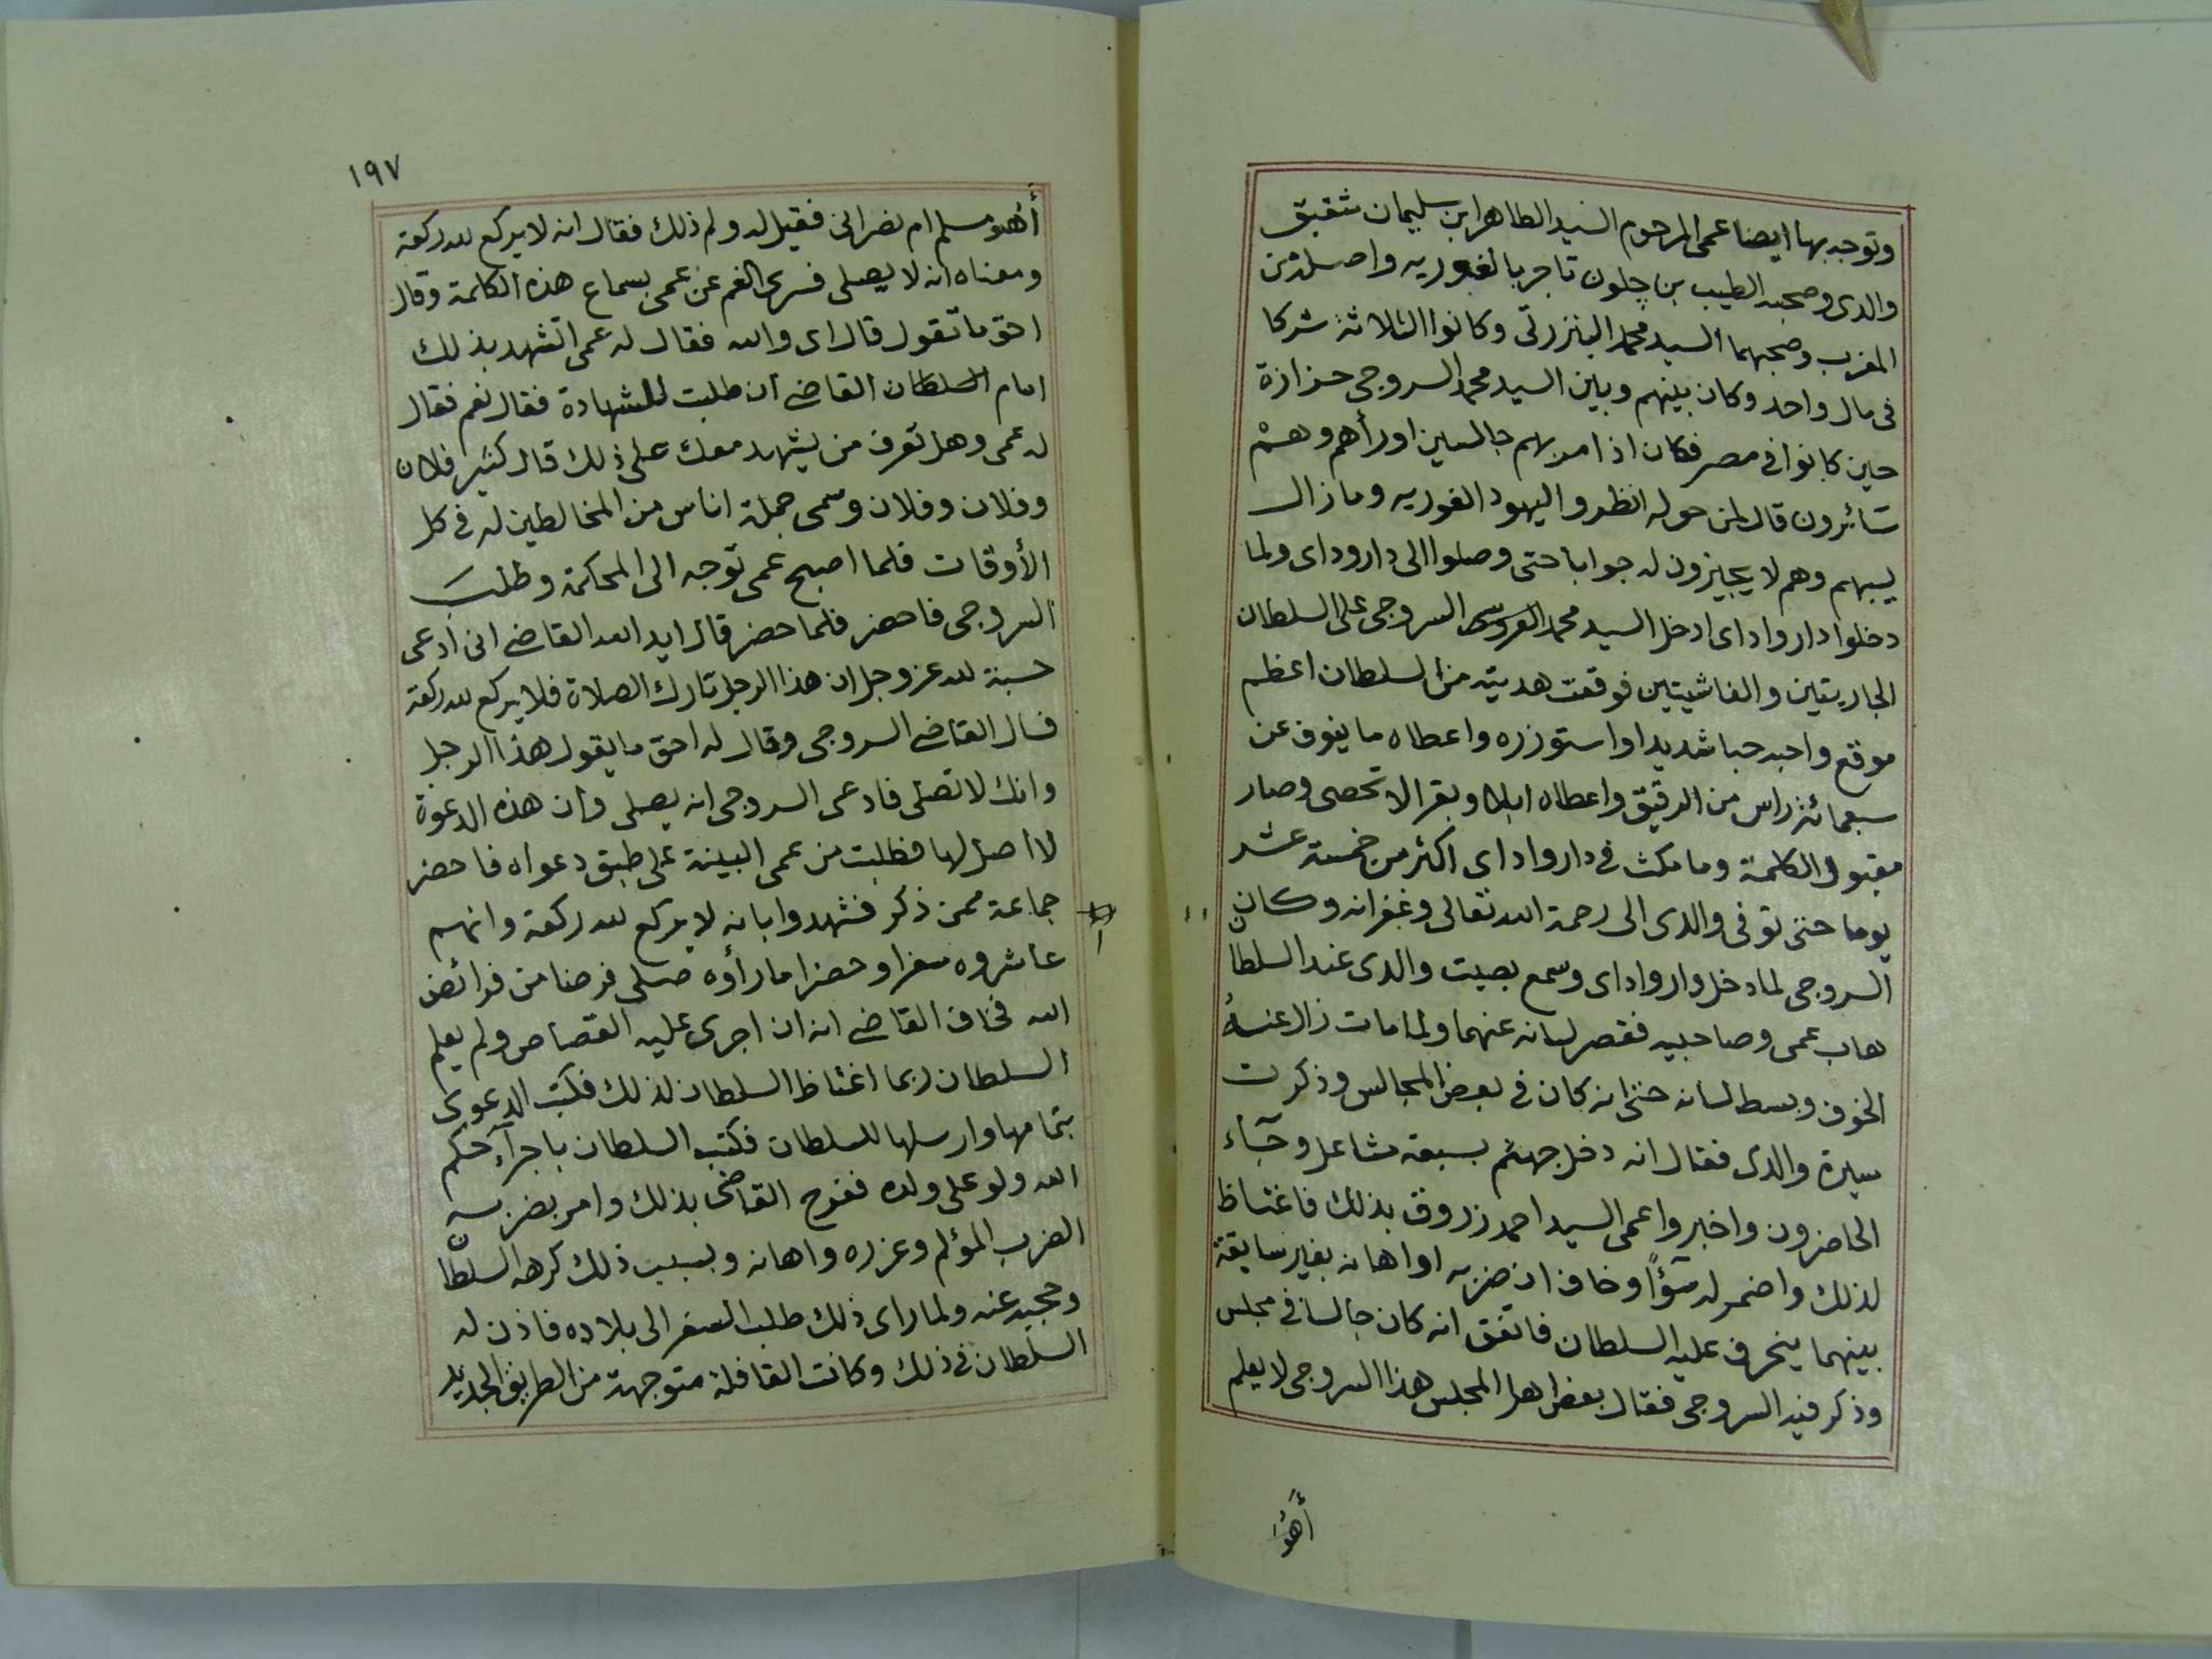 وتوجه بها ايضا عمى المرحوم السيد الطاهر ابن سليمان شقيق
والدى وصحبه الطيب بن جلون تاجر بالغوريه واصله من
المغرب وصحبهما السيد محمد البنزرتى وكانوا الثلاثة شركا
فى مال واحد وكان بينهم وبين السيد محمد السروجى حزازة
حين كانوا فى مصر فكان اذا مر بهم جالسين اورأهم وهم
سائرون قال لمن حوله انظروا اليهود الغوريه وما زال
يسبهم وهم لا يجيزون له جوابا حتى وصلوا الى دار وداى ولما
دخلوا دار واداى ادخل السيد محمد السروجى على السلطان
الجاريتين والغاشيتين فوقعت هديته من السلطان اعظم
موقع واحبه حبا شديدا واستوزره واعطاه ما ينوف عن
سبعمائة راس من الرقيق واعطاه ابلا وبقرا لا تحصى وصار
مقبول الكلمة وما مكث فى دار واداى اكثر من خمسة عشر
يوما حتى توفى والدى الى رحمة الله تعالى وغفرانه وكان
السروجى لما دخل دار واداى وسمع بصيت والدى عند السلطان
هاب عمى وصاحبيه فقصر لسانه عنهما ولما مات زال عنه
الخوف وبسط لسانه حتى انه كان فى بعض المجالس وذكرت
سيرة والدى فقال انه دخل جهنم بسبعة مشاعل وجاء
الحاضرون واخبروا عمى السيد احمد زروق بذلك فاغتاظ
لذلك واضمر له سوًأ وخاف ان ضربه او اهانه بغير سابقة
بينهما ينحرف عليه السلطان فاتفق انه كان جالسا فى مجلس
وذكر فيه السروجى فقال بعض اهل المجلس هذا السروجى لا يعلم
أهو
١٩٧
أهو مسلم ام نصرانى فقيل له ولم ذلك فقال انه لا يركع لله ركعة
ومعناه انه لا يصلى فسرى الغم عن عمى بسماع هذه الكلمة وقال
احق ما تقول قال اى والله فقال له عمى اتشهد بذلك
امام السلطان القاضى ان طلبت للشهادة فقال نعم فقال
له عمى وهل تعرف من يشهد معك على ذلك قال كثير فلان
وفلان وفلان وسمى جملة اناس من المخالطين له فى كل
الأوقات فلما اصبح عمى توجه الى المحاكمة وطلب
السروجى فاحضر فلما حضر قال ايد الله القاضى انى ادعى
حسبة لله عز وجل ان هذا الرجل تارك الصلاة فلا يركع لله ركعة
فسال القاضى السروجى وقال له احق ما يقول هذا الرجل
وانك لا تصلى فادعى السروجى انه يصلى وان هذه الدعوة
لا اصل لها فطلبت من عمى البينة على طبق دعواه فاحضر
جماعة ممن ذكر فشهدوا بانه لا يركع لله ركعة وانهم
عاشروه سفرا وحضرا ما رأوه صلى فرضا من فرائض
الله فخاف القاضى انه ان اجرى عليه القصاص ولم يعلم
السلطان ربما اغتاظ السلطان لذلك فكتب الدعوى
بتمامها وارسلها للسلطان فكتب السلطان باجرآء حكم
الله ولو على ولده ففرح القاضى بذلك وامر بضربه
الضرب المؤلم وعزره واهانه وبسبب ذلك كرهه السلطان
وحجبه عنه ولما راى ذلك طلب السفر الى بلاده فاذن له
السلطان فى ذلك وكانت القافلة متوجهة من الطريق الجديد